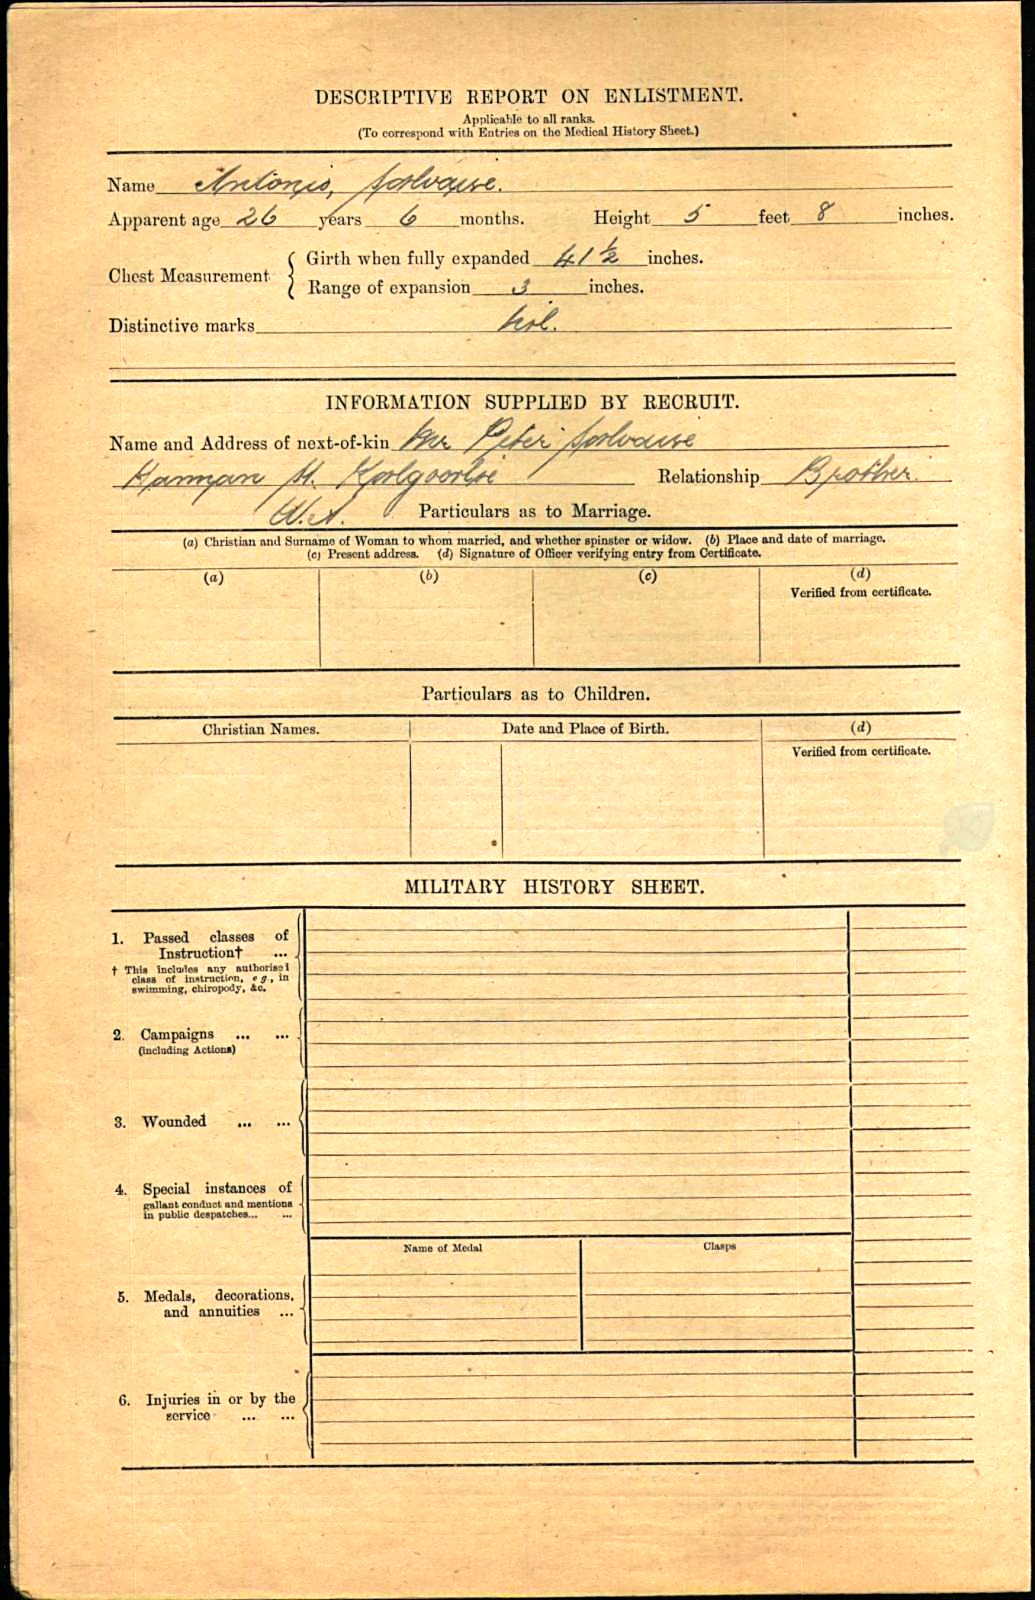 DESCRIPTIVE REPORT ON ENLISTMENT.
Applicable to all ranks.
(To correspond with Entries on the Medical History Sheet.)
Name Antonio,
Apparent age 26 years 6 months. Height 5 feet 8 inches.
Chest Measurement { Girth when fully expanded 41 1/2 inches.
Range of expansion 3 inches.
Distinctive marks Nil.
INFORMATION SUPPLIED BY RECRUIT.
Name and Address of next-of-kin Mr Peter
Hannan St. Kalgoorlie Relationship Brother.
W.A. Particulars as to Marriage.
(a) Christian and Surname of Woman to whom married, and whether spinster or widow. (b) Place and date of marriage.
(c) Present address. (d) Signature of Officer verifying entry from Certificate.
(a) (b) (c) (d)
Verified from certificate.
Particulars as to Children.
Christian Names. Date and Place of Birth. (d)
Verified from certificate.
MILITARY HISTORY SHEET.
1. Passed classes of
Instruction† ...
† This includes any authorised
class of instruction, e g., in
swimming, chiropody, &c.
2. Campaigns ... ...
(including Actions)
3. Wounded ... ...
4. Special instances of
gallant conduct and mentions
in public despatches... ...
Name of Medal Clasps
5. Medals, decorations,
and annuities ...
6. Injuries in or by the
service ... ...